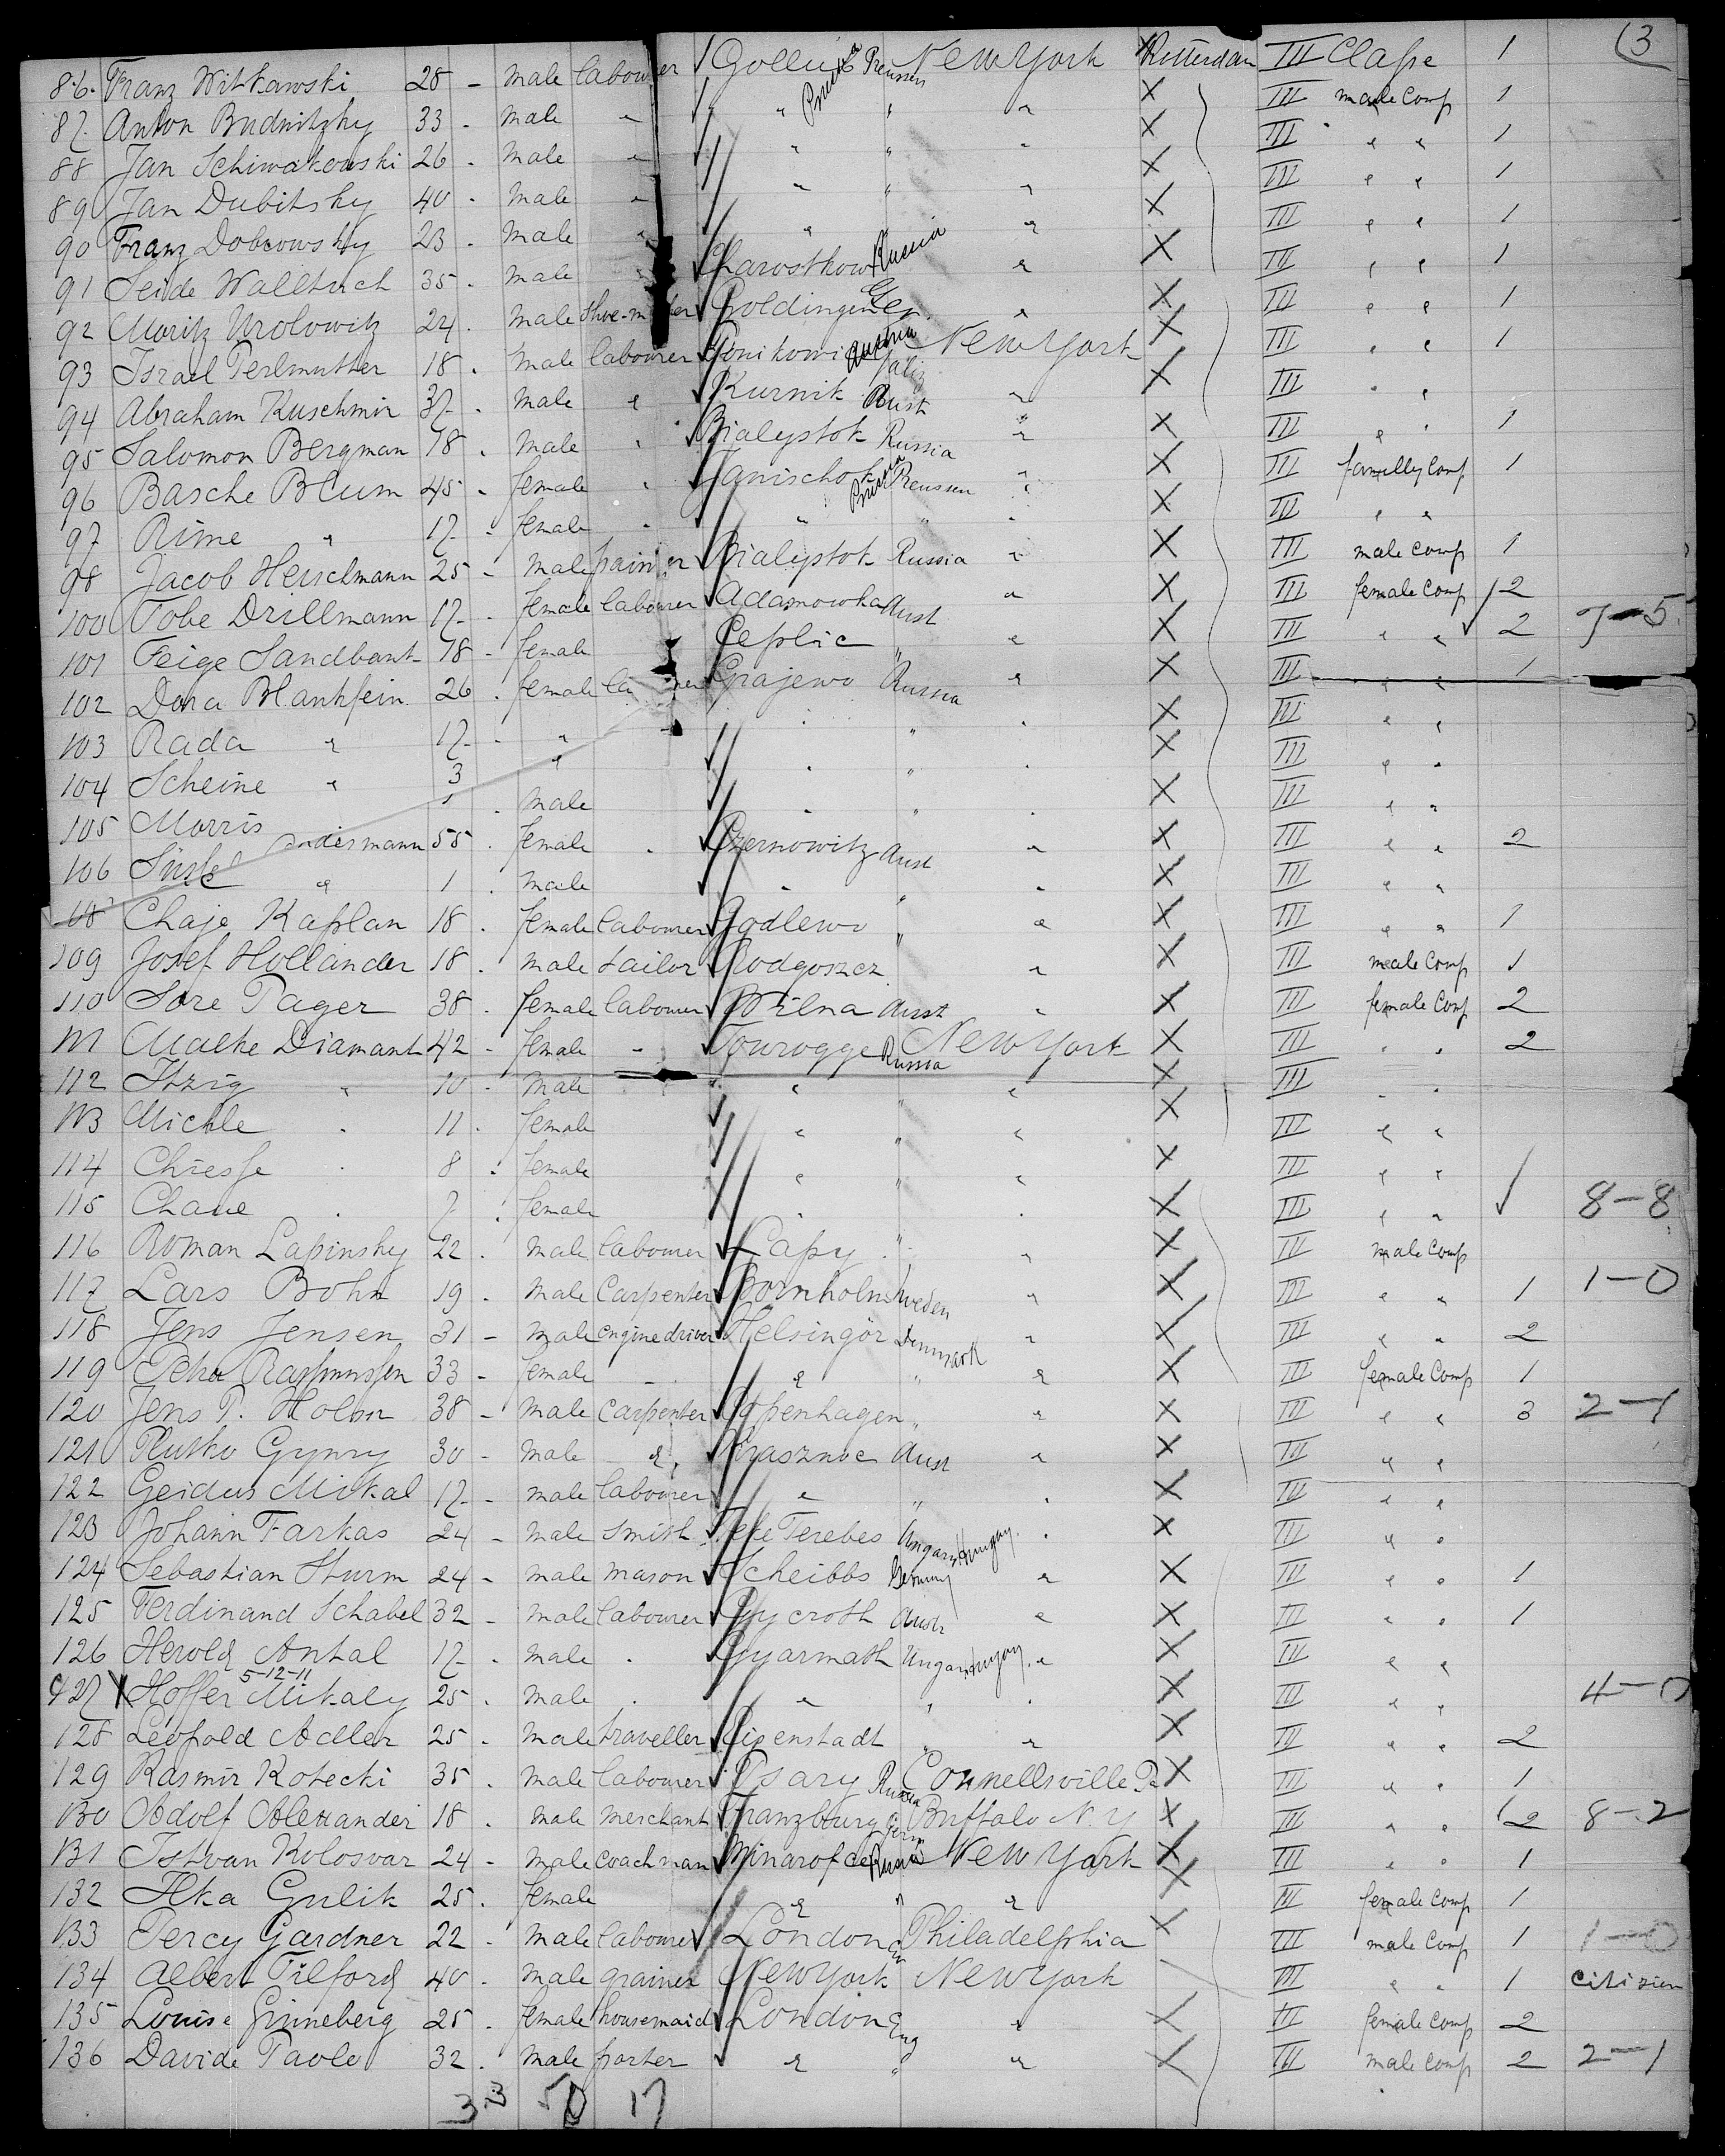 (3
86. Franz Witkawski 28 - male labourer Gollub Prussia Preussen New York Rotterdam III Classe 1
87. Anton Budnitzky 33 - male " " " " III male Comp 1
88 Jan Schiwakowski 26 - male " " " " III " " 1
89 Jan Dubitsky 40 - male " " " " III " " 1
90 Franz Dobrowsky 23 - male " " " " III " " 1
91 Seide Walltuch 35 - male " Charostkow Russia " III " " 1
92 Moritz Urolowitz 24 - male Shoe-maker Goldingen " III " " 1
93 Israel Perlmutter 18 - male labourer Austria Galiz New York III " " 1
94 Abraham Kuschmir 37 - male " Kurnik Aust " III " "
95 Salomon Bergman 18 - male " Bialystok Russia " III " " 1
96 Basche Blum 45 - female " Janischok Prussia Preussen " III familly Comp 1
97 Rime " 17 - female " " " " III " "
98 Jacob Herschmann 25 - male painter Bialystok Russia " III male Comp 1
100 Tobe Drillmann 17 - female labourer Adamowka Aust " III female Comp 2
101 Feige Sandbank 18 - female Ceplic " " III " " 2 7-5
102 Dora Blankfein 26 - female Grajewo Russia " III " " 1
103 Rada " 17 - " " " " III " "
104 Scheine " 3 " " " " III " "
105 Morris - male " " " III " "
106 Süsse 55 - female " Czernowitz Aust " III " " 2
" 1 - male " " " III " "
108 Chaje Kaplan 18 - female labourer Godlewo " " III " " 1
109 Josef Hollander 18 - male tailor Rodgoszcz " III male Comp 1
110 Sore Pager 38 - female labourer Wilna Aust " III female Comp 2
111 Malke Diamant 42 - female " Tourogge Russia New York III " " 2
112 Itzig " 10 - male " " " III " "
113 Michle " 11 - female " " " III " "
114 Chiesse " 8 - female " " " III " "
115 Chane " 7 - female " " III " " 8-8
116 Roman Lapinsky 22 - male labourer Lapy " " III male Comp
117 Lars Bohn 19 - male Carpenter Bornholm Sweden " III " " 1 1-0
118 Jens Jensen 31 - male enginedriver Helsingör Denmark " III " " 2
119 Rassmussen 33 - female - " " " III female Comp 1
120 Jens P. Holm 38 - male Carpenter Copenhagen " " III " " 3 2-1
121 Rutko Gynry 30 - male " Krasznoc Aust " III " "
122 Geidus Mikal 17 - male labourer " " " III " "
123 Johann Farkas 24 - male Smith Terebes Ungarn Hungary " III " "
124 Sebastian Sturm 24 - male mason Scheibbs Germany " III " " 1
125 Ferdinand Schabel 32 - male labourer Gycroth Austr " III " " 1
126 Herold Antal 17 - male " Gyarmath Ungarn Hungary " III " "
5-12-11
127 X Hoffer Mikaly 25 - male " " " " III " " 4-0
128 Leopold Adler 25 - male traveller Eisenstadt " " III " " 2
129 Kasmir Kotecki 35 - male labourer Psary Russia Connellsville Pa III " " 1
130 Adolf Alexander 18 - male merchant Franzburg Germ Buffalo N.Y III " " 2 8-2
131 Istvan Kolosvar 24 - male coachman Russia New York III " " 1
132 Ilka Gulik 25 - female " " " III female Comp 1
133 Percy Gardner 22 - male labourer London Eng Philadelphia III male Comp 1 1-0
134 Albert Tilford 40 - male grainer New York New York III " " 1 citizen
135 Louise Ginneberg 25 - female housemaid London Eng " III female Comp 2
136 Davide Paolo 32 - male porter " " " III male Comp 2 2-1
33 50 17